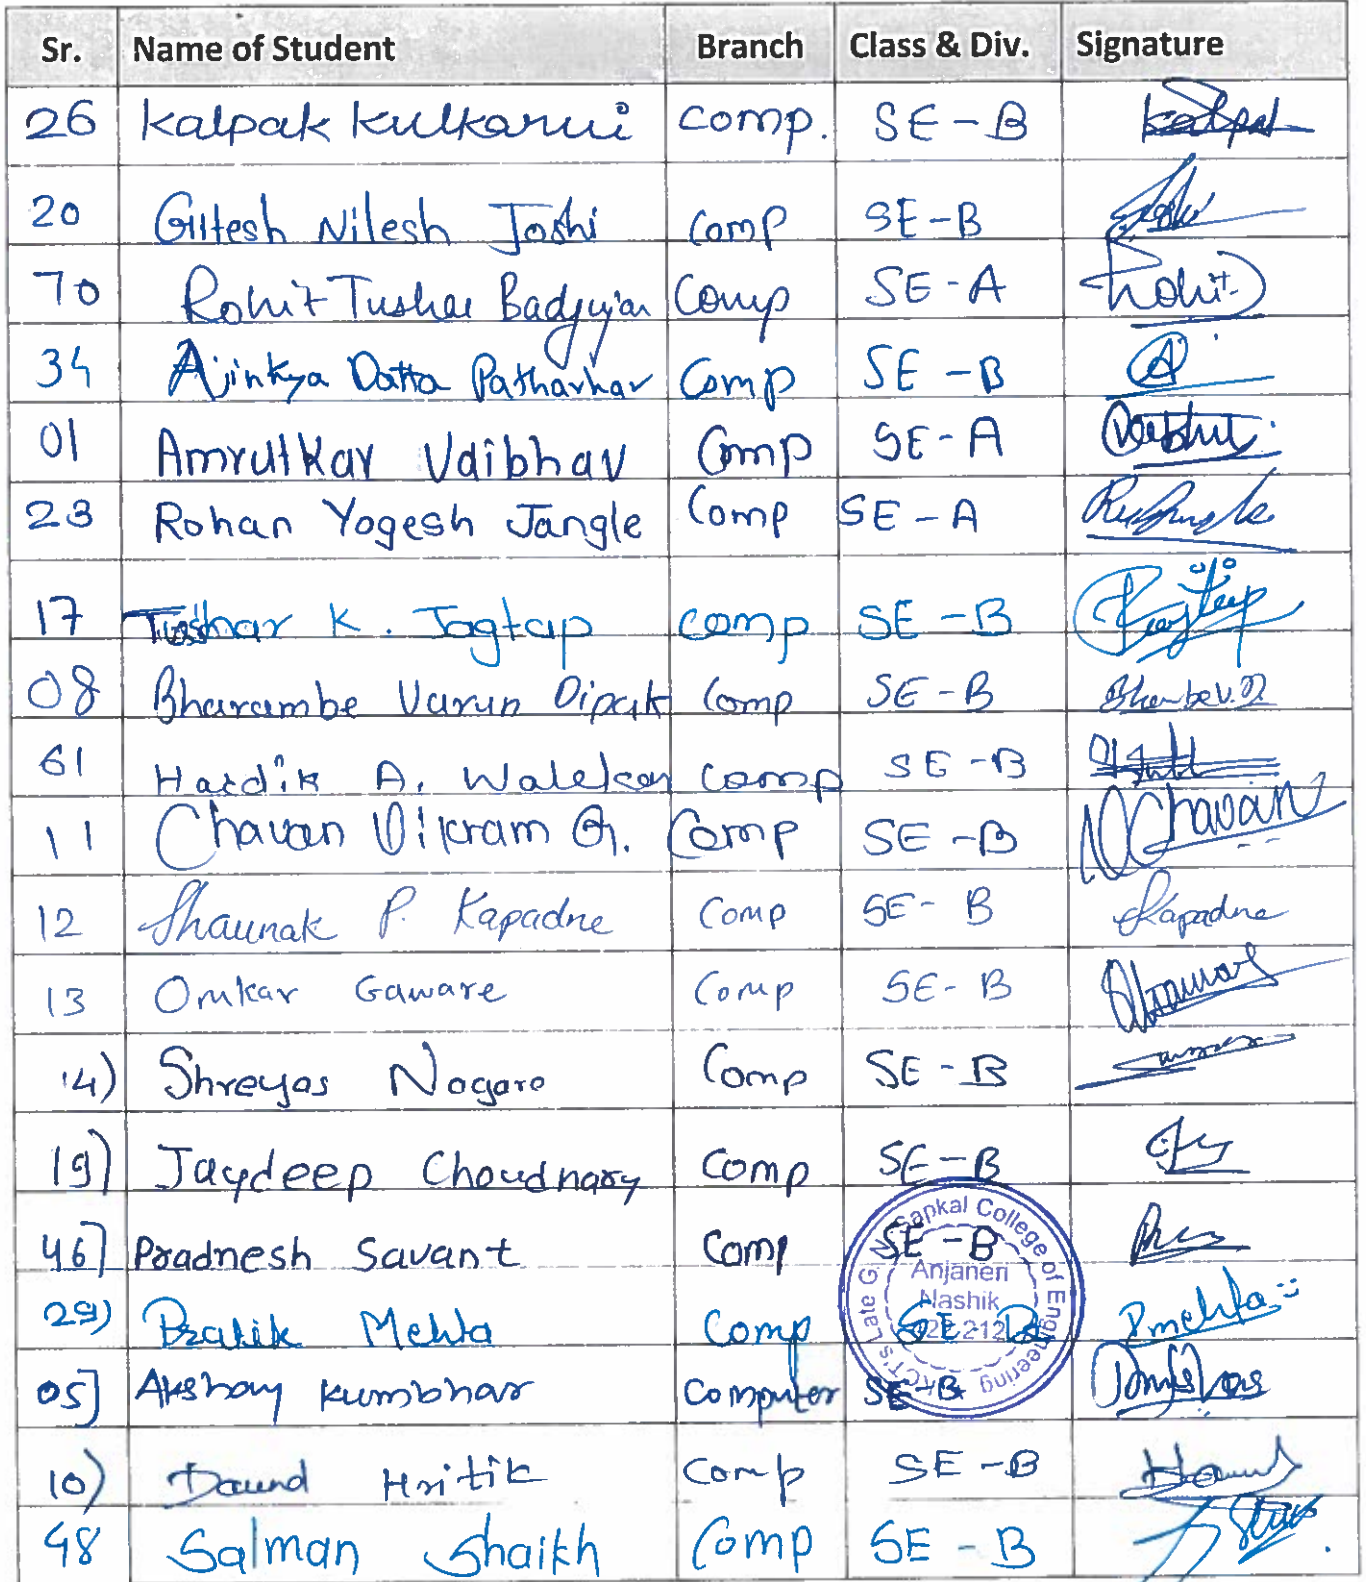 Sr. Name of Student Branch Class & Div. Signature
26 Kalpak Kulkarni Comp. SE-B Kalpak
20 Gitesh Nilesh Joshi Comp SE-B
70 Rohit Tushar Badgujar Comp SE-A Rohit
34 Ajinkya Datta Patharkar Comp SE-B A
01 Amrutkar Vaibhav Comp SE-A
23 Rohan Yogesh Jangle Comp SE-A
17 Tushar K. Jagtap Comp SE-B
08 Bharambe Varun Dipak Comp SE-B
61 Hardik A. Walekar Comp SE-B
11 Chavan Vikram G. Comp SE-B Chavan
12 Shaunak P. Kapadne Comp SE-B Kapadne
13 Omkar Gaware Comp SE-B
14) Shreyas Nagare Comp SE-B
19) Jaydeep Choudhary Comp SE-B
46] Pradnesh Savant Comp SE-B
29) Pratik Mehta Comp SE B Pmehta
05] Akshay Kumbhar Computer SE-B
10) Daund Hritik Comp SE-B
48 Salman Shaikh Comp SE-B
KCT's Late G. N. Sapkal College of Engineering
Anjaneri
Nashik
212